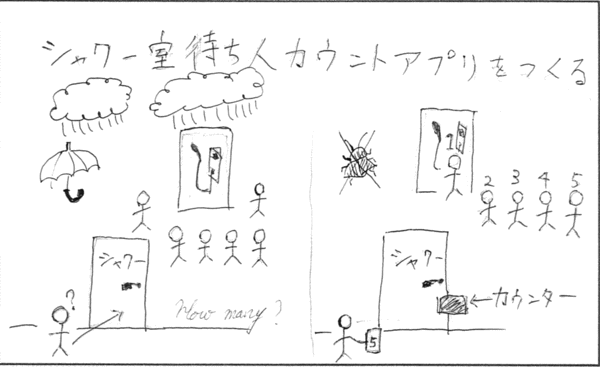 シャワー室待ち人カウントアプリをつくる
シャワー
?
How many?
1
2 3 4 5
シャワー
←カウンター
5